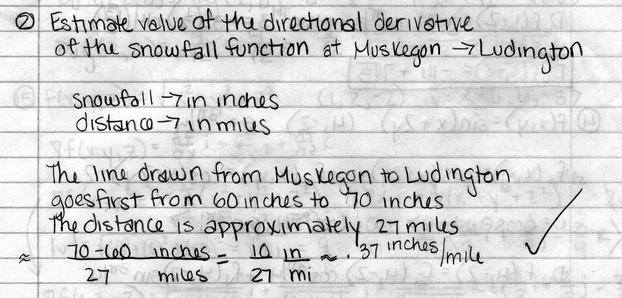 ② Estimate value of the directional derivative
of the snowfall function at Muskegon → Ludington
snowfall → in inches
distance → in miles
The line drawn from Muskegon to Ludington
goes first from 60 inches to 70 inches
The distance is approximately 27 miles
≈ 70-60 inches / 27 miles = 10 in / 27 mi ≈ .37 inches/mile ✓